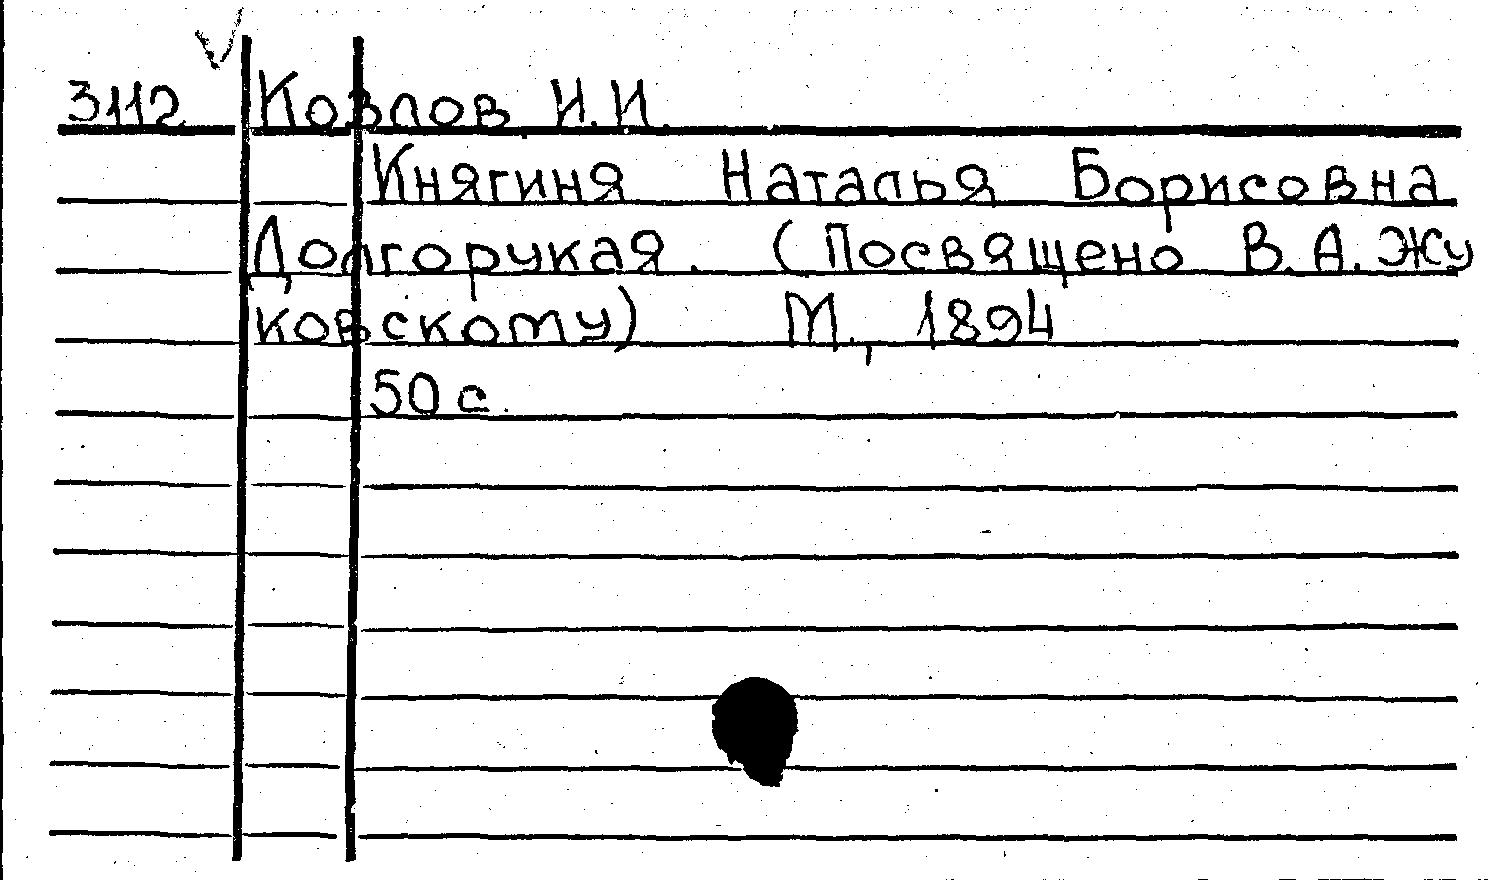 3112 Козлов И.И.
Княгиня Наталья Борисовна
Долгорукая. (Посвящено В.А. Жу
ковскому) М., 1894
50 с.